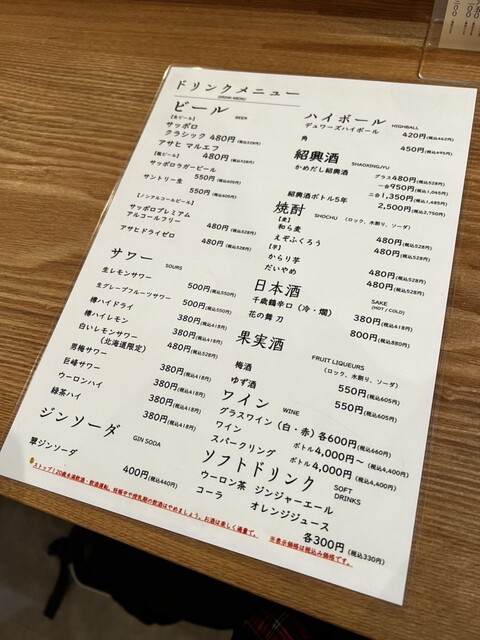 ドリンクメニュー
DRINK MENU
ビール BEER
【生ビール】
サッポロ
クラシック 480円(税込528円)
アサヒ マルエフ
480円(税込528円)
【瓶ビール】
サッポロラガービール
550円(税込605円)
サントリー生
550円(税込605円)
【ノンアルコールビール】
サッポロプレミアム
アルコールフリー
480円(税込528円)
アサヒドライゼロ
480円(税込528円)
サワー SOURS
生レモンサワー
500円(税込550円)
生グレープフルーツサワー
500円(税込550円)
樽ハイドライ
380円(税込418円)
樽ハイレモン
380円(税込418円)
白いレモンサワー
(北海道限定) 480円(税込528円)
男梅サワー
380円(税込418円)
巨峰サワー
380円(税込418円)
ウーロンハイ
380円(税込418円)
緑茶ハイ
380円(税込418円)
ジンソーダ GIN SODA
翠ジンソーダ
400円(税込440円)
ハイボール HIGHBALL
デュワーズハイボール
420円(税込462円)
角
450円(税込495円)
紹興酒 SHAOXINGJYU
かめだし紹興酒
グラス 480円(税込528円)
一合 950円(税込1,045円)
二合 1,350円(税込1,485円)
紹興酒ボトル5年
2,500円(税込2,750円)
焼酎 SHOCHU (ロック、水割り、ソーダ)
【麦】
和ら麦
480円(税込528円)
えぞふくろう
480円(税込528円)
【芋】
からり芋
480円(税込528円)
だいやめ
480円(税込528円)
日本酒 SAKE
(HOT / COLD)
千歳鶴辛口(冷・燗)
380円(税込418円)
花の舞 刀
800円(税込880円)
果実酒 FRUIT LIQUEURS
(ロック、水割り、ソーダ)
梅酒
550円(税込605円)
ゆず酒
550円(税込605円)
ワイン WINE
グラスワイン(白・赤)各600円(税込660円)
ワイン
ボトル 4,000円~(税込4,400円)
スパークリング
ボトル 4,000円(税込4,400円)
ソフトドリンク SOFT DRINKS
ウーロン茶 ジンジャーエール
コーラ オレンジジュース
各300円(税込330円)
ストップ!20歳未満飲酒・飲酒運転。妊娠中や授乳期の飲酒はやめましょう。お酒は楽しく適量で。 ※表示価格は税込み価格です。